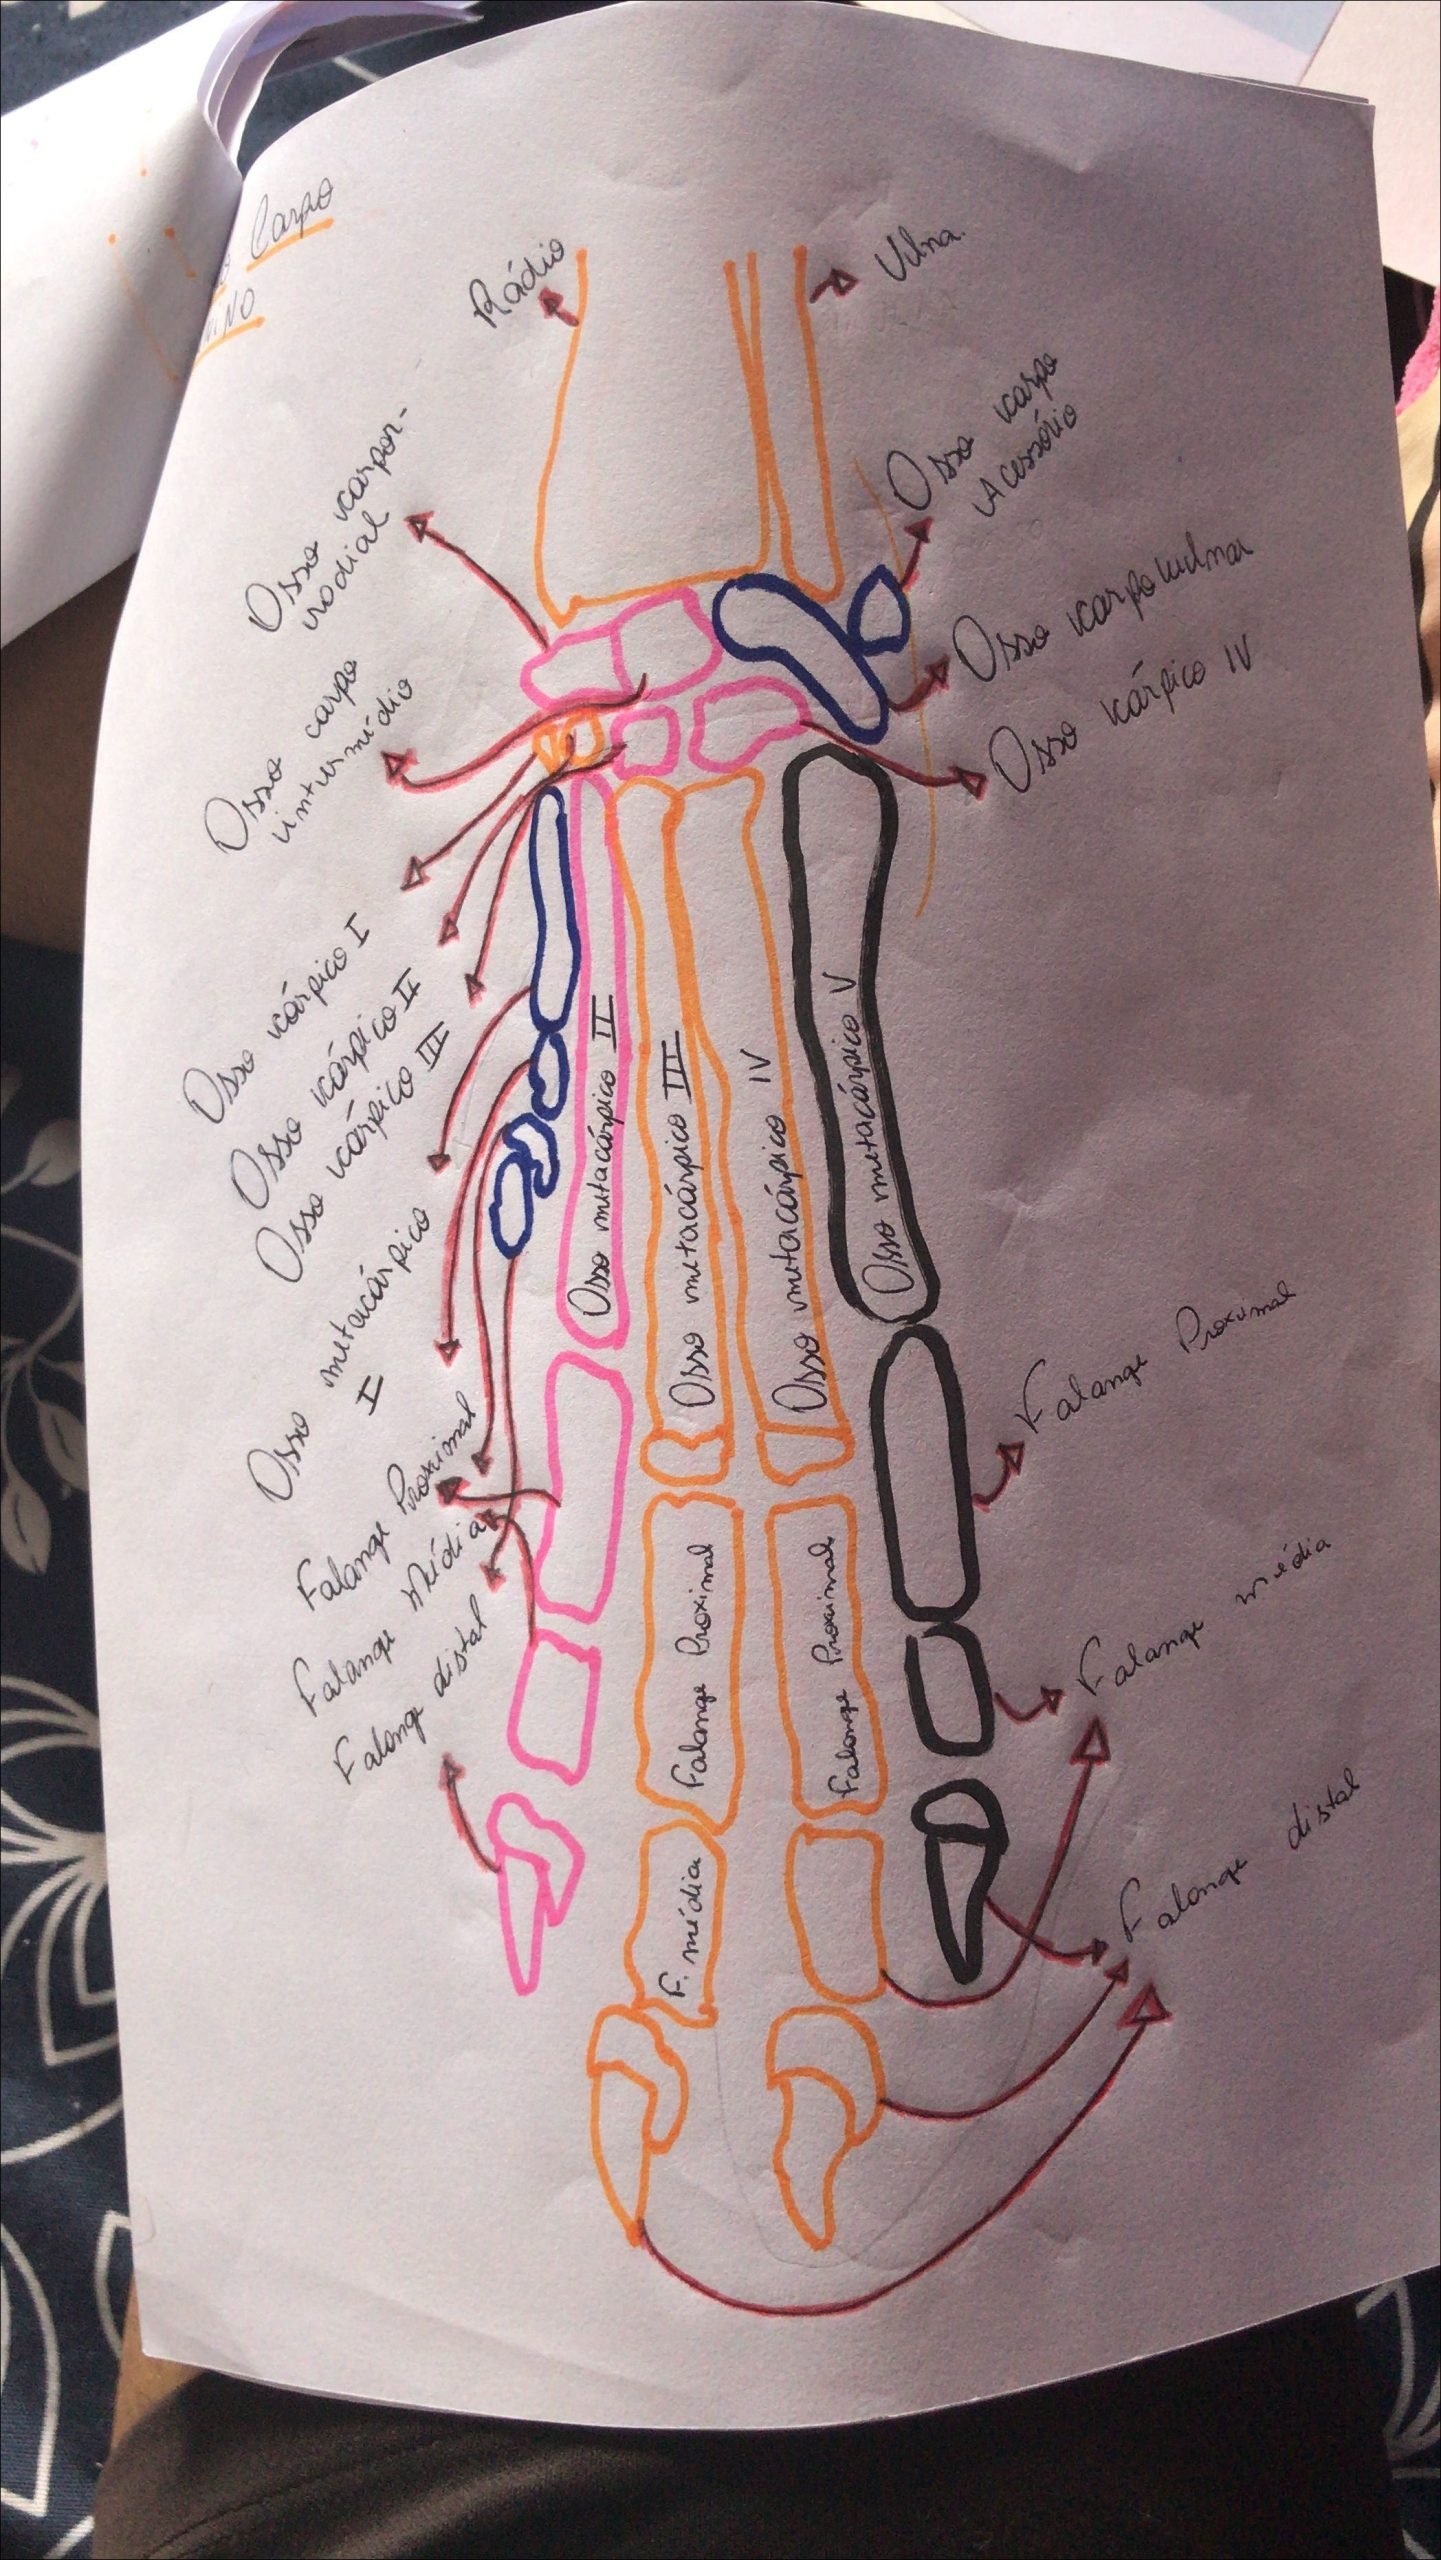 Carpo
Rádio
Ulna.
Osso carpor-
radial
Osso carpo
Acessório
Osso carpo ulnar
Osso carpo
intermédio
Osso cárpico IV
Osso cárpico I
Osso cárpico II
Osso cárpico III
Osso metacárpico
I
Osso metacárpico II
Osso metacárpico III
Osso metacárpico IV
Osso metacárpico V
Falange Proximal
Falange Média
Falange distal
Falange Proximal
Falange Proximal
F. média
Falange Proximal
Falange média
Falange distal